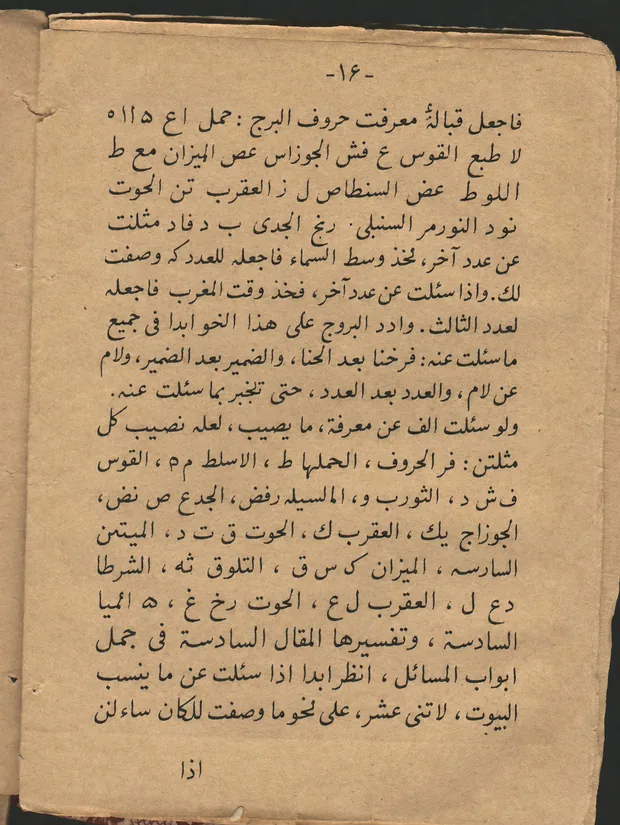 -١٦-
فاجعل قبالهٔ معرفت حروف البرج : حمل اع ١١٥ ٥
لا طبع القوس ع فش الجوزاس عص الميزان مع ط
اللوط عض السنطاص ل ز العقرب تن الحوت
نود النورمر السنبلى . رنج الجدى ب د فاد مثلنت
عن عدد آخر، نخذ وسط السماء فاجعله للعدد كه وصفت
لك. واذا سئلت عن عدد آخر، فخذ وقت المغرب فاجعله
لعدد الثالث. وادد البروج على هذا الخو ابدا فى جميع
ما سئلت عنه : فرخنا بعد الحنا، والضمير بعد الضمير، ولام
عن لام، والعدد بعد العدد، حتى تخبر بما سئلت عنه.
ولو سئلت الف عن معرفة، ما يصيب، لعله نصيب كل
مثلتن : فر الحروف، الحملها ط، الاسلط م٥، القوس
ف ش د، الثورب و، المالسيله رفض، الجدع ص نض،
الجوزاج يك، العقرب ك، الحوت ق ت د، الميتىن
السارسه، الميزان ك س ق، التلوق ثه، الشرطا
دع ل، العقرب ل ع، الحوت رخ غ، ۵ ائميا
السادسة، وتفسيرها المقال السادسة فى جمل
ابواب المسائل، انظر ابدا اذا سئلت عن ما ينسب
البيوت، لاتنى عشر، على نحو ما وصفت للكان ساء لنن
اذا